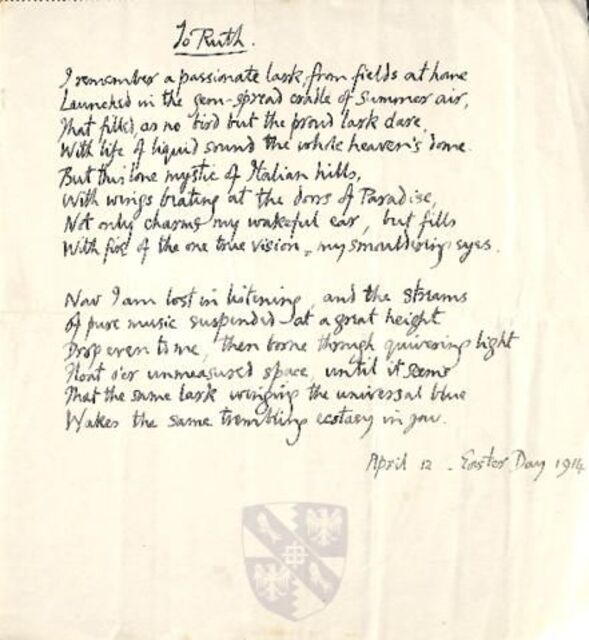 To Ruth.
I remember a passionate lark, from fields at home
Launched in the gem-spread cradle of Summer air,
That filled, as no bird but the proud lark dare,
With life of liquid sound the whole heaven's dome.
But this lone mystic of Italian hills,
With wings beating at the doors of Paradise,
Not only charms my wakeful ear, but fills
With fire of the one true vision, my smouldering eyes.
Now I am lost in listening, and the streams
Of pure music suspended at a great height
Drop even to me, then borne through quivering light
Float o'er unmeasured space, until it seems
That the same lark winging the universal blue
Wakes the same trembling ecstasy in you.
April 12 - Easter Day 1914